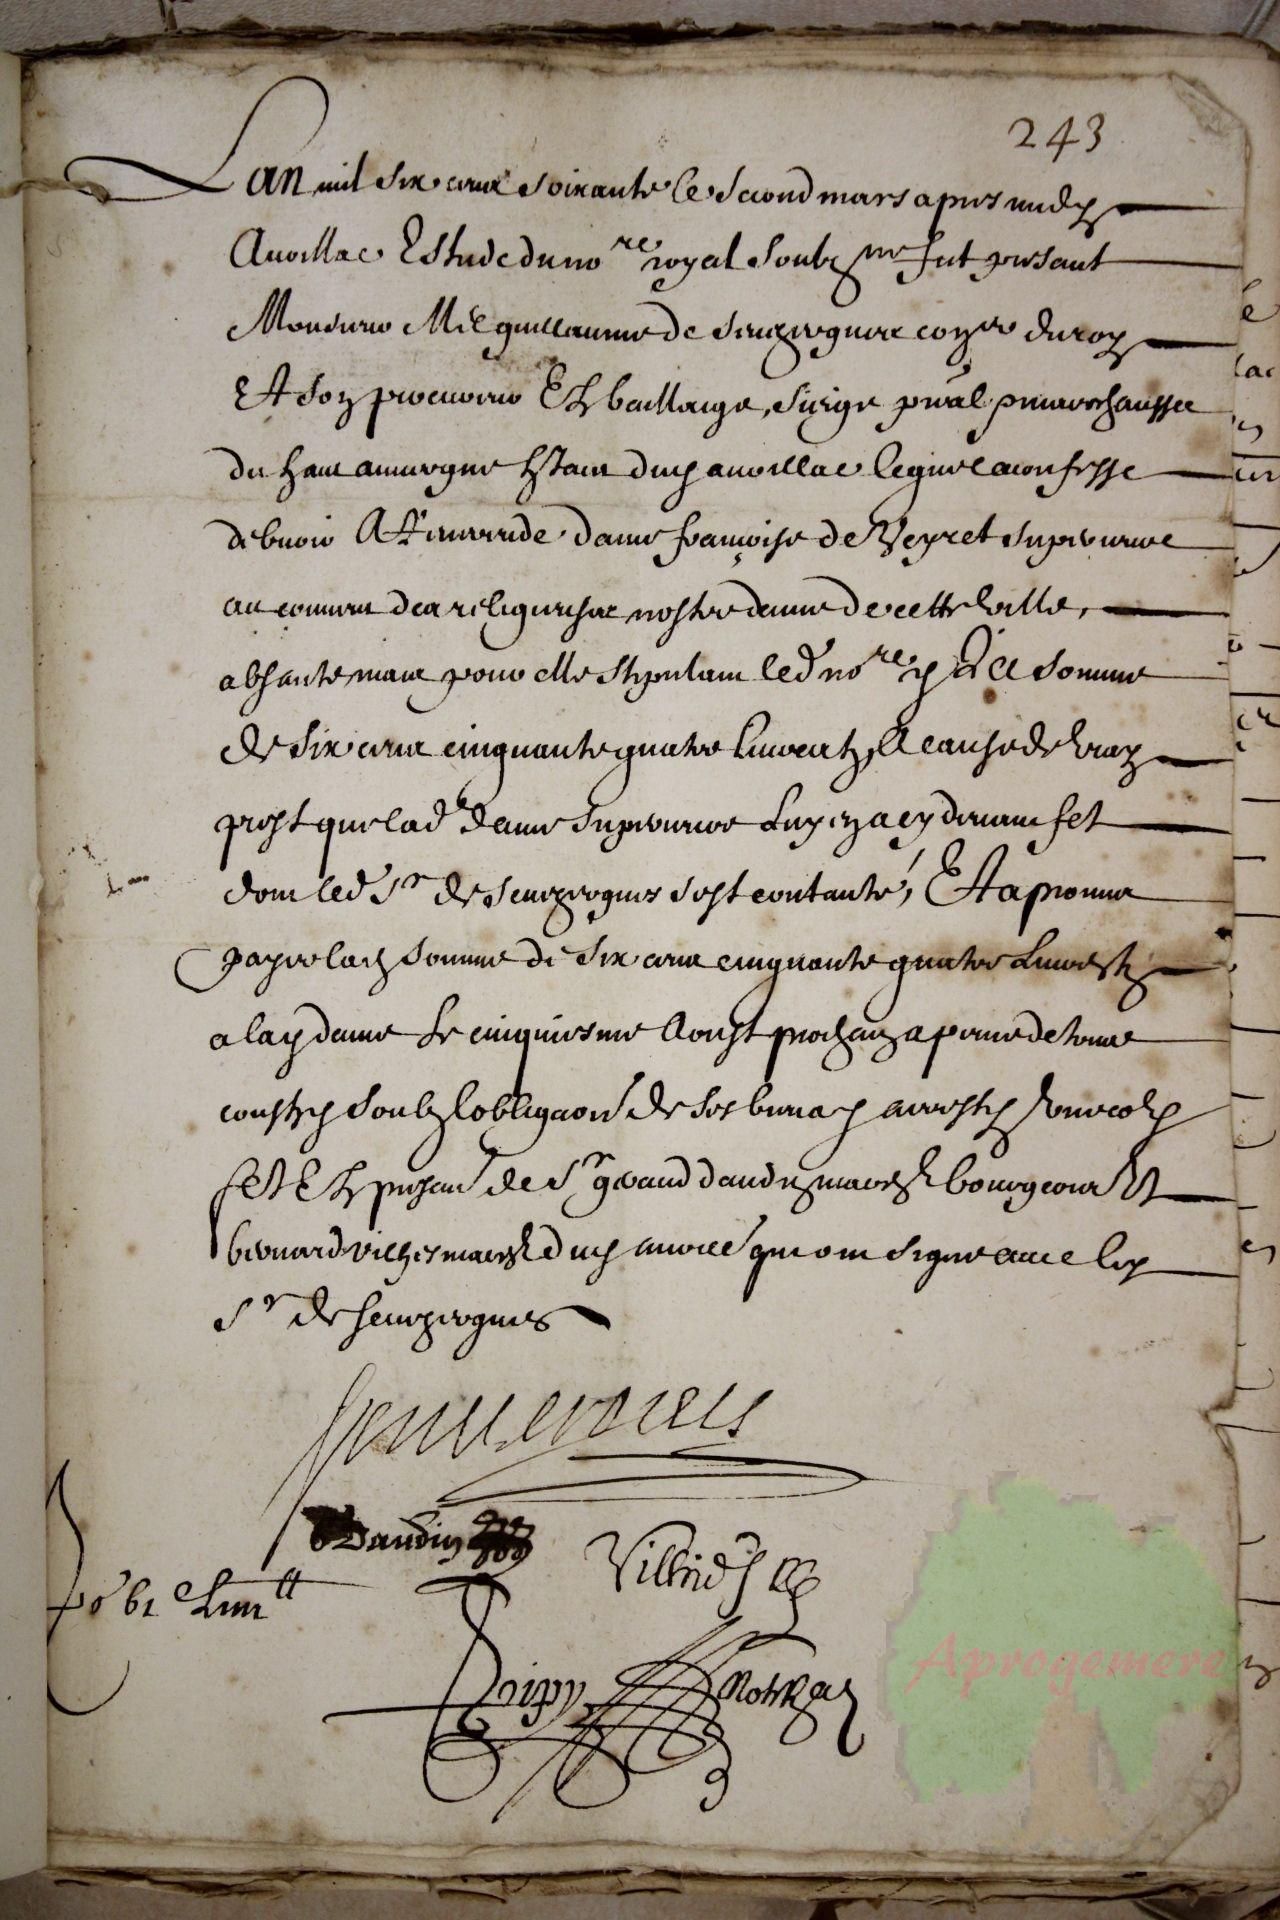 243
Lan mil six cens soixante le second mars apres midy
Aurillac Estude du no re royal soubz ne fut presant
Monsieur Me guillaume de senezergues coner du roy
Et son procureur En bailliage, siege p'nal p marechaussee
du haut auvergne Estant duch aurillac lequel a confesse
debvoir A Reverende dame francoise de Veyret superieure
au couvent des religieuses nostre dame de cette ville,
absante mais pour elle stipulant led no re p la somme
de six cens cinquante quatre livres tz, A cause de vray
prest que lad dame superieure luy en a cy devant fet
dont led Sr de senezergues sest contanté, Et a promis
payer lad somme de six cens cinquante quatre livres tz
a lad dame le cinquiesme Aoust prochain a peine de tous
soubz lobliga'on de ses biens
fet En presan' de Sr geraud daudin march bourgeois Et
bernard march duch aurillac qui ont signe avec led
Sr de senezergues
Senezergues
Daudin
po
Notre
Aprogemere